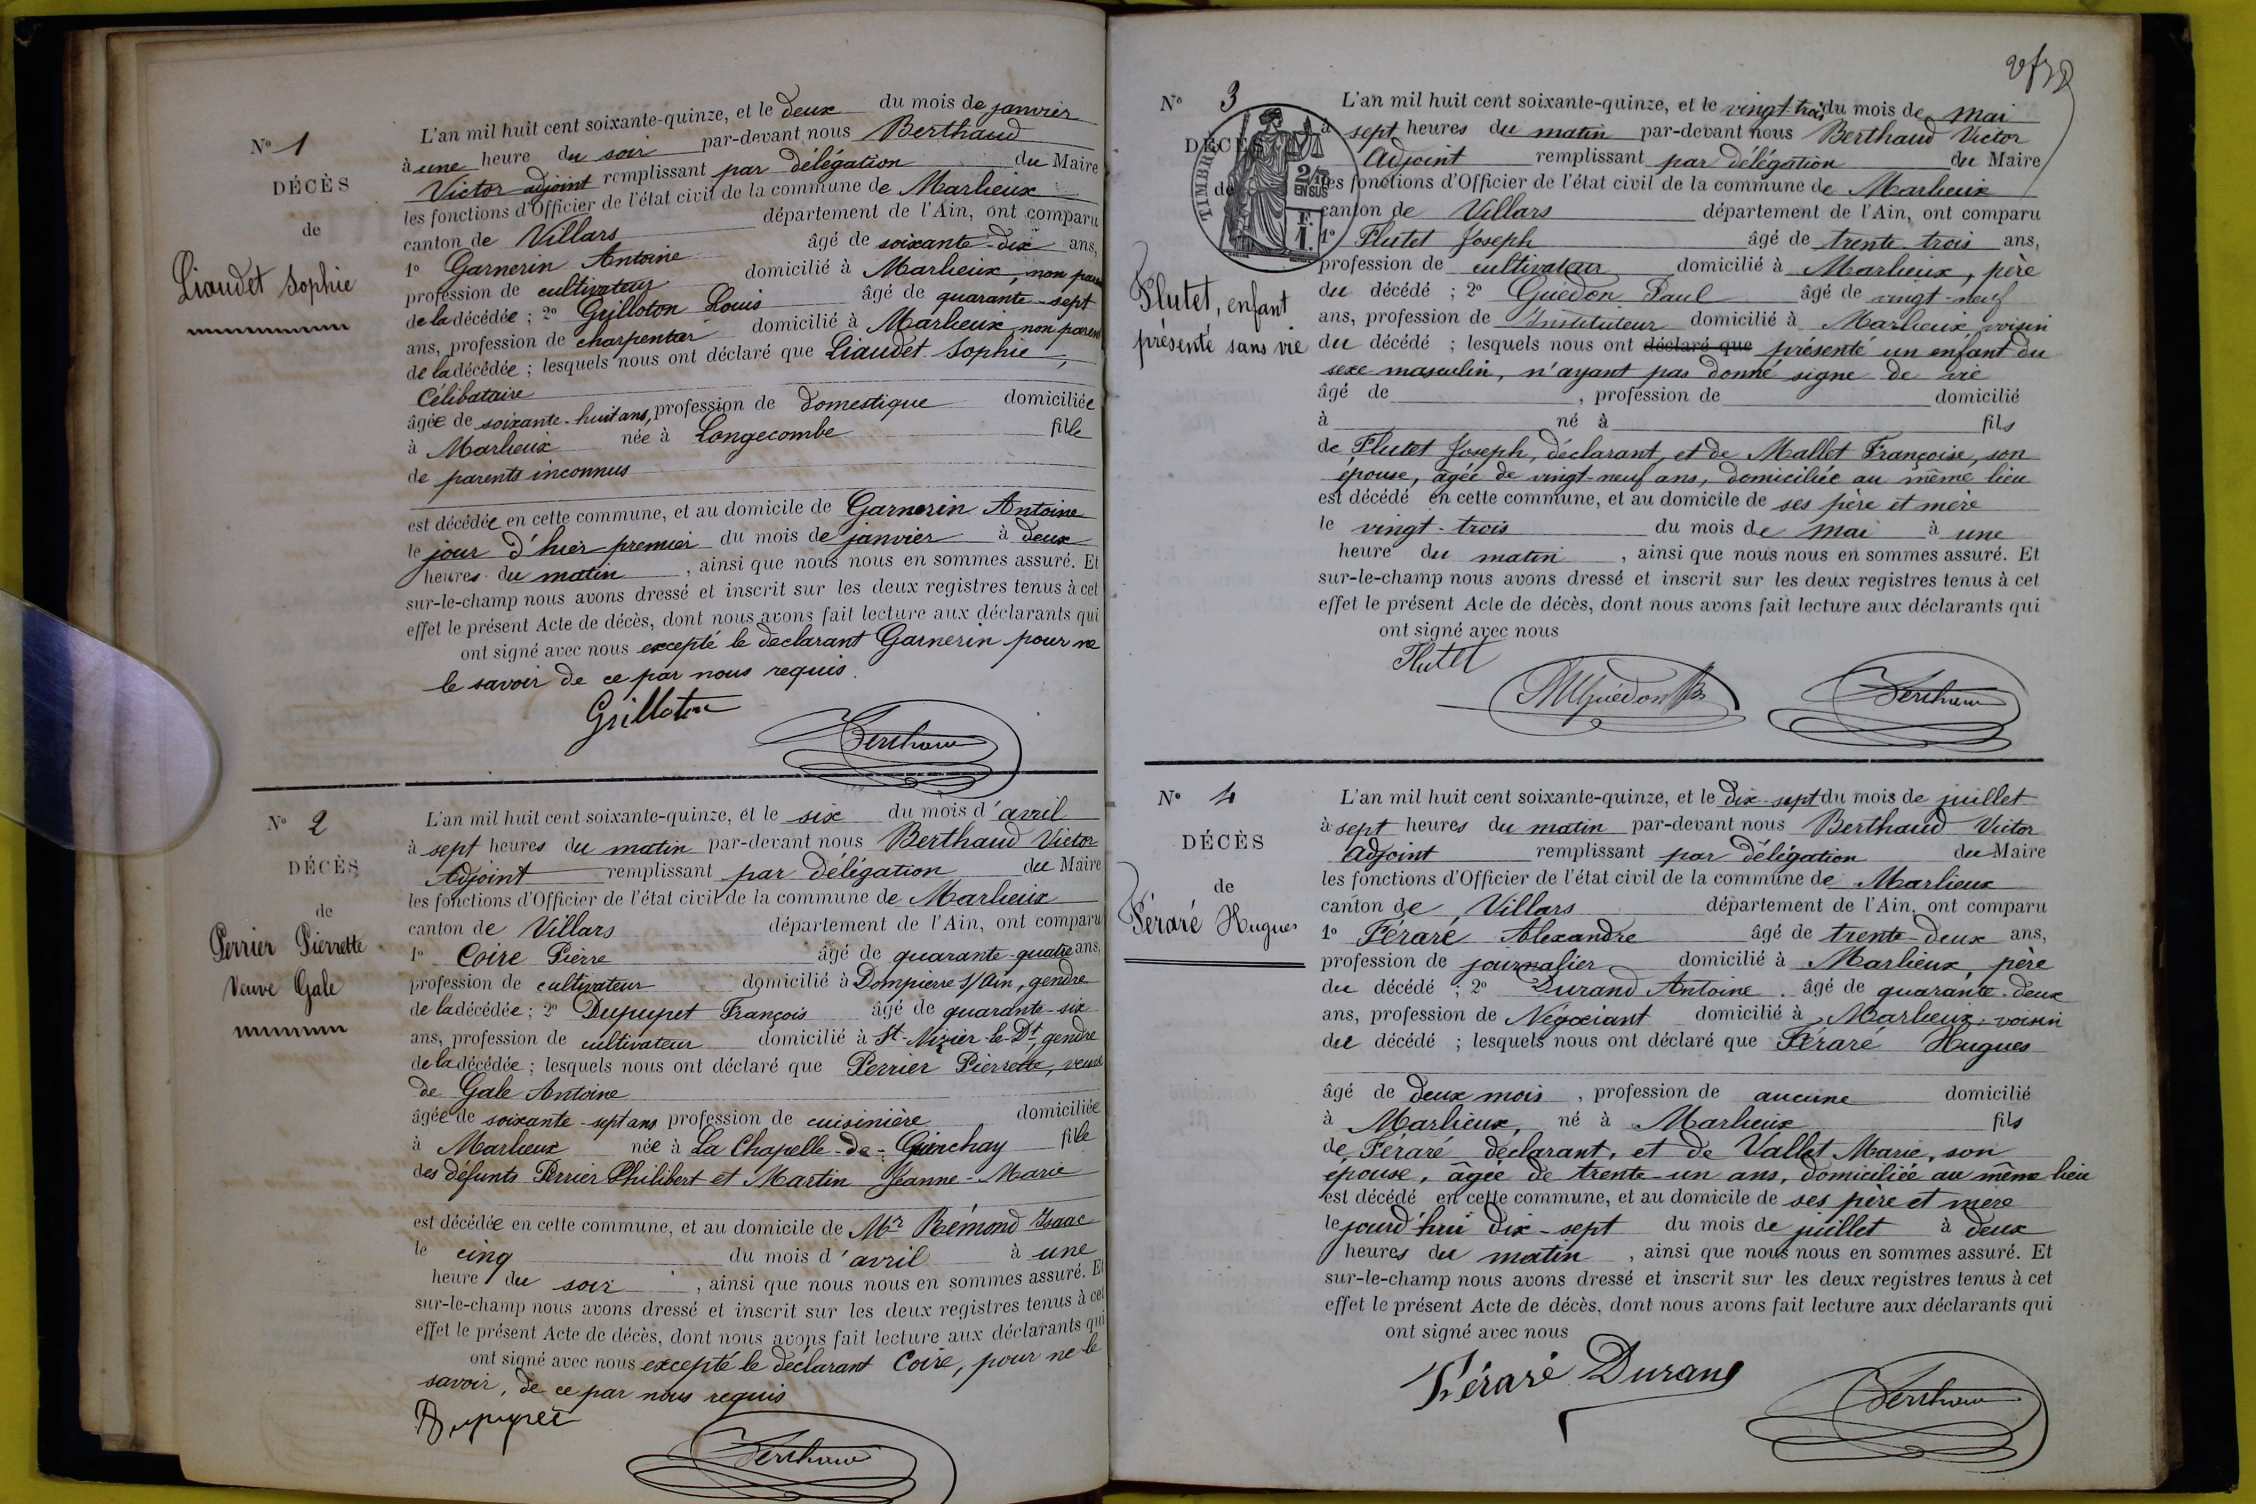 Nº 1
DÉCÈS
de
Liaudet Sophie
L'an mil huit cent soixante-quinze, et le deux du mois de janvier
à une heure du soir par-devant nous Berthaud
Victor adjoint remplissant par délégation du Maire
les fonctions d'Officier de l'état civil de la commune de Marlieux
canton de Villars département de l'Ain, ont comparu
1º Garnerin Antoine âgé de soixante-dix ans,
profession de cultivateur domicilié à Marlieux, non parent
de la décédée ; 2º Grilloton Louis âgé de quarante-sept
ans, profession de charpentier domicilié à Marlieux, non parent
de la décédée ; lesquels nous ont déclaré que Liaudet Sophie,
Célibataire
âgée de soixante-huit ans, profession de domestique domiciliée
à Marlieux née à Longecombe fille
de parents inconnus
est décédée en cette commune, et au domicile de Garnerin Antoine
le jour d'hier premier du mois de janvier à deux
heures du matin, ainsi que nous nous en sommes assuré. Et
sur-le-champ nous avons dressé et inscrit sur les deux registres tenus à cet
effet le présent Acte de décès, dont nous avons fait lecture aux déclarants qui
ont signé avec nous excepté le déclarant Garnerin pour ne
le savoir de ce par nous requis.
Grilloton
Berthaud
Nº 2
DÉCÈS
de
Perrier Pierrette
Veuve Gale
L'an mil huit cent soixante-quinze, et le six du mois d'avril
à sept heures du matin par-devant nous Berthaud Victor
Adjoint remplissant par délégation du Maire
les fonctions d'Officier de l'état civil de la commune de Marlieux
canton de Villars département de l'Ain, ont comparu
1º Coire Pierre âgé de quarante-quatre ans,
profession de cultivateur domicilié à Dompierre s/Ain, gendre
de la décédée ; 2º Dupupet François âgé de quarante-six
ans, profession de cultivateur domicilié à St-Nizier-le-Dt, gendre
de la décédée ; lesquels nous ont déclaré que Perrier Pierrette, veuve
de Gale Antoine
âgée de soixante-sept ans profession de cuisinière domiciliée
à Marlieux née à La Chapelle-de-Guinchay fille
des défunts Perrier Philibert et Martin Jeanne-Marie
est décédée en cette commune, et au domicile de Mr Rémond Isaac
le cinq du mois d'avril à une
heure du soir, ainsi que nous nous en sommes assuré. Et
sur-le-champ nous avons dressé et inscrit sur les deux registres tenus à cet
effet le présent Acte de décès, dont nous avons fait lecture aux déclarants qui
ont signé avec nous excepté le déclarant Coire, pour ne le
savoir, de ce par nous requis
Dupupet
Berthaud
Nº 3
DÉCÈS
de
TIMBRE
2/10
EN SUS
F.
1.
Flutet, enfant
présenté sans vie
L'an mil huit cent soixante-quinze, et le vingt-trois du mois de mai
à sept heures du matin par-devant nous Berthaud Victor
Adjoint remplissant par délégation du Maire
les fonctions d'Officier de l'état civil de la commune de Marlieux
canton de Villars département de l'Ain, ont comparu
1º Flutet Joseph âgé de trente-trois ans,
profession de cultivateur domicilié à Marlieux, père
du décédé ; 2º Guédon Paul âgé de vingt-neuf
ans, profession de Instituteur domicilié à Marlieux, voisin
du décédé ; lesquels nous ont déclaré que présenté un enfant du
sexe masculin, n'ayant pas donné signe de vie
âgé de , profession de domicilié
à né à fils
de Flutet Joseph, déclarant, et de Mallet Françoise, son
épouse, âgée de vingt-neuf ans, domiciliée au même lieu
est décédé en cette commune, et au domicile de ses père et mère
le vingt-trois du mois de mai à une
heure du matin, ainsi que nous nous en sommes assuré. Et
sur-le-champ nous avons dressé et inscrit sur les deux registres tenus à cet
effet le présent Acte de décès, dont nous avons fait lecture aux déclarants qui
ont signé avec nous
Flutet
Guédon
Berthaud
Nº 4
DÉCÈS
de
Féraré Hugues
L'an mil huit cent soixante-quinze, et le dix-sept du mois de juillet
à sept heures du matin par-devant nous Berthaud Victor
Adjoint remplissant par délégation du Maire
les fonctions d'Officier de l'état civil de la commune de Marlieux
canton de Villars département de l'Ain, ont comparu
1º Féraré Alexandre âgé de trente-deux ans,
profession de journalier domicilié à Marlieux, père
du décédé ; 2º Durand Antoine âgé de quarante-deux
ans, profession de Négociant domicilié à Marlieux, voisin
du décédé ; lesquels nous ont déclaré que Féraré Hugues
âgé de deux mois, profession de aucune domicilié
à Marlieux, né à Marlieux fils
de Féraré déclarant, et de Vallet Marie, son
épouse, âgée de trente-un ans, domiciliée au même lieu
est décédé en cette commune, et au domicile de ses père et mère
le jourd'hui dix-sept du mois de juillet à deux
heures du matin, ainsi que nous nous en sommes assuré. Et
sur-le-champ nous avons dressé et inscrit sur les deux registres tenus à cet
effet le présent Acte de décès, dont nous avons fait lecture aux déclarants qui
ont signé avec nous
Féraré Durand
Berthaud